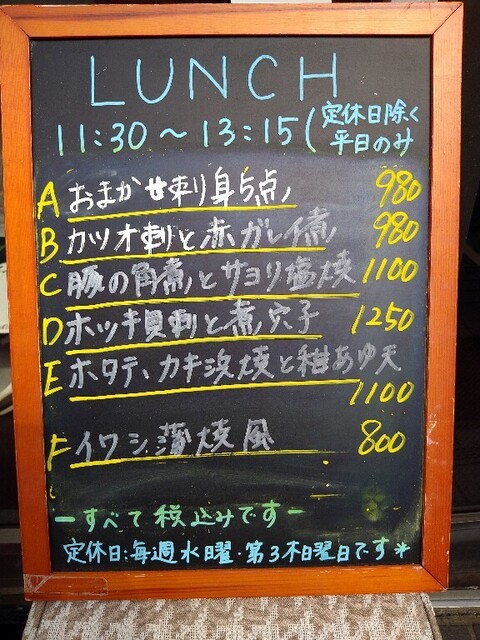 LUNCH
11:30～13:15(定休日除く
平日のみ
A おまかせ刺り身5点 980
B カツオ刺と赤ガレイ煮 980
C 豚の角煮とサヨリ塩焼 1100
D ホッキ貝刺と煮穴子 1250
E ホタテ、カキ浜焼と稚あゆ天
1100
F イワシ蒲焼風 800
-すべて税込みです-
定休日:毎週水曜・第3木曜日です*